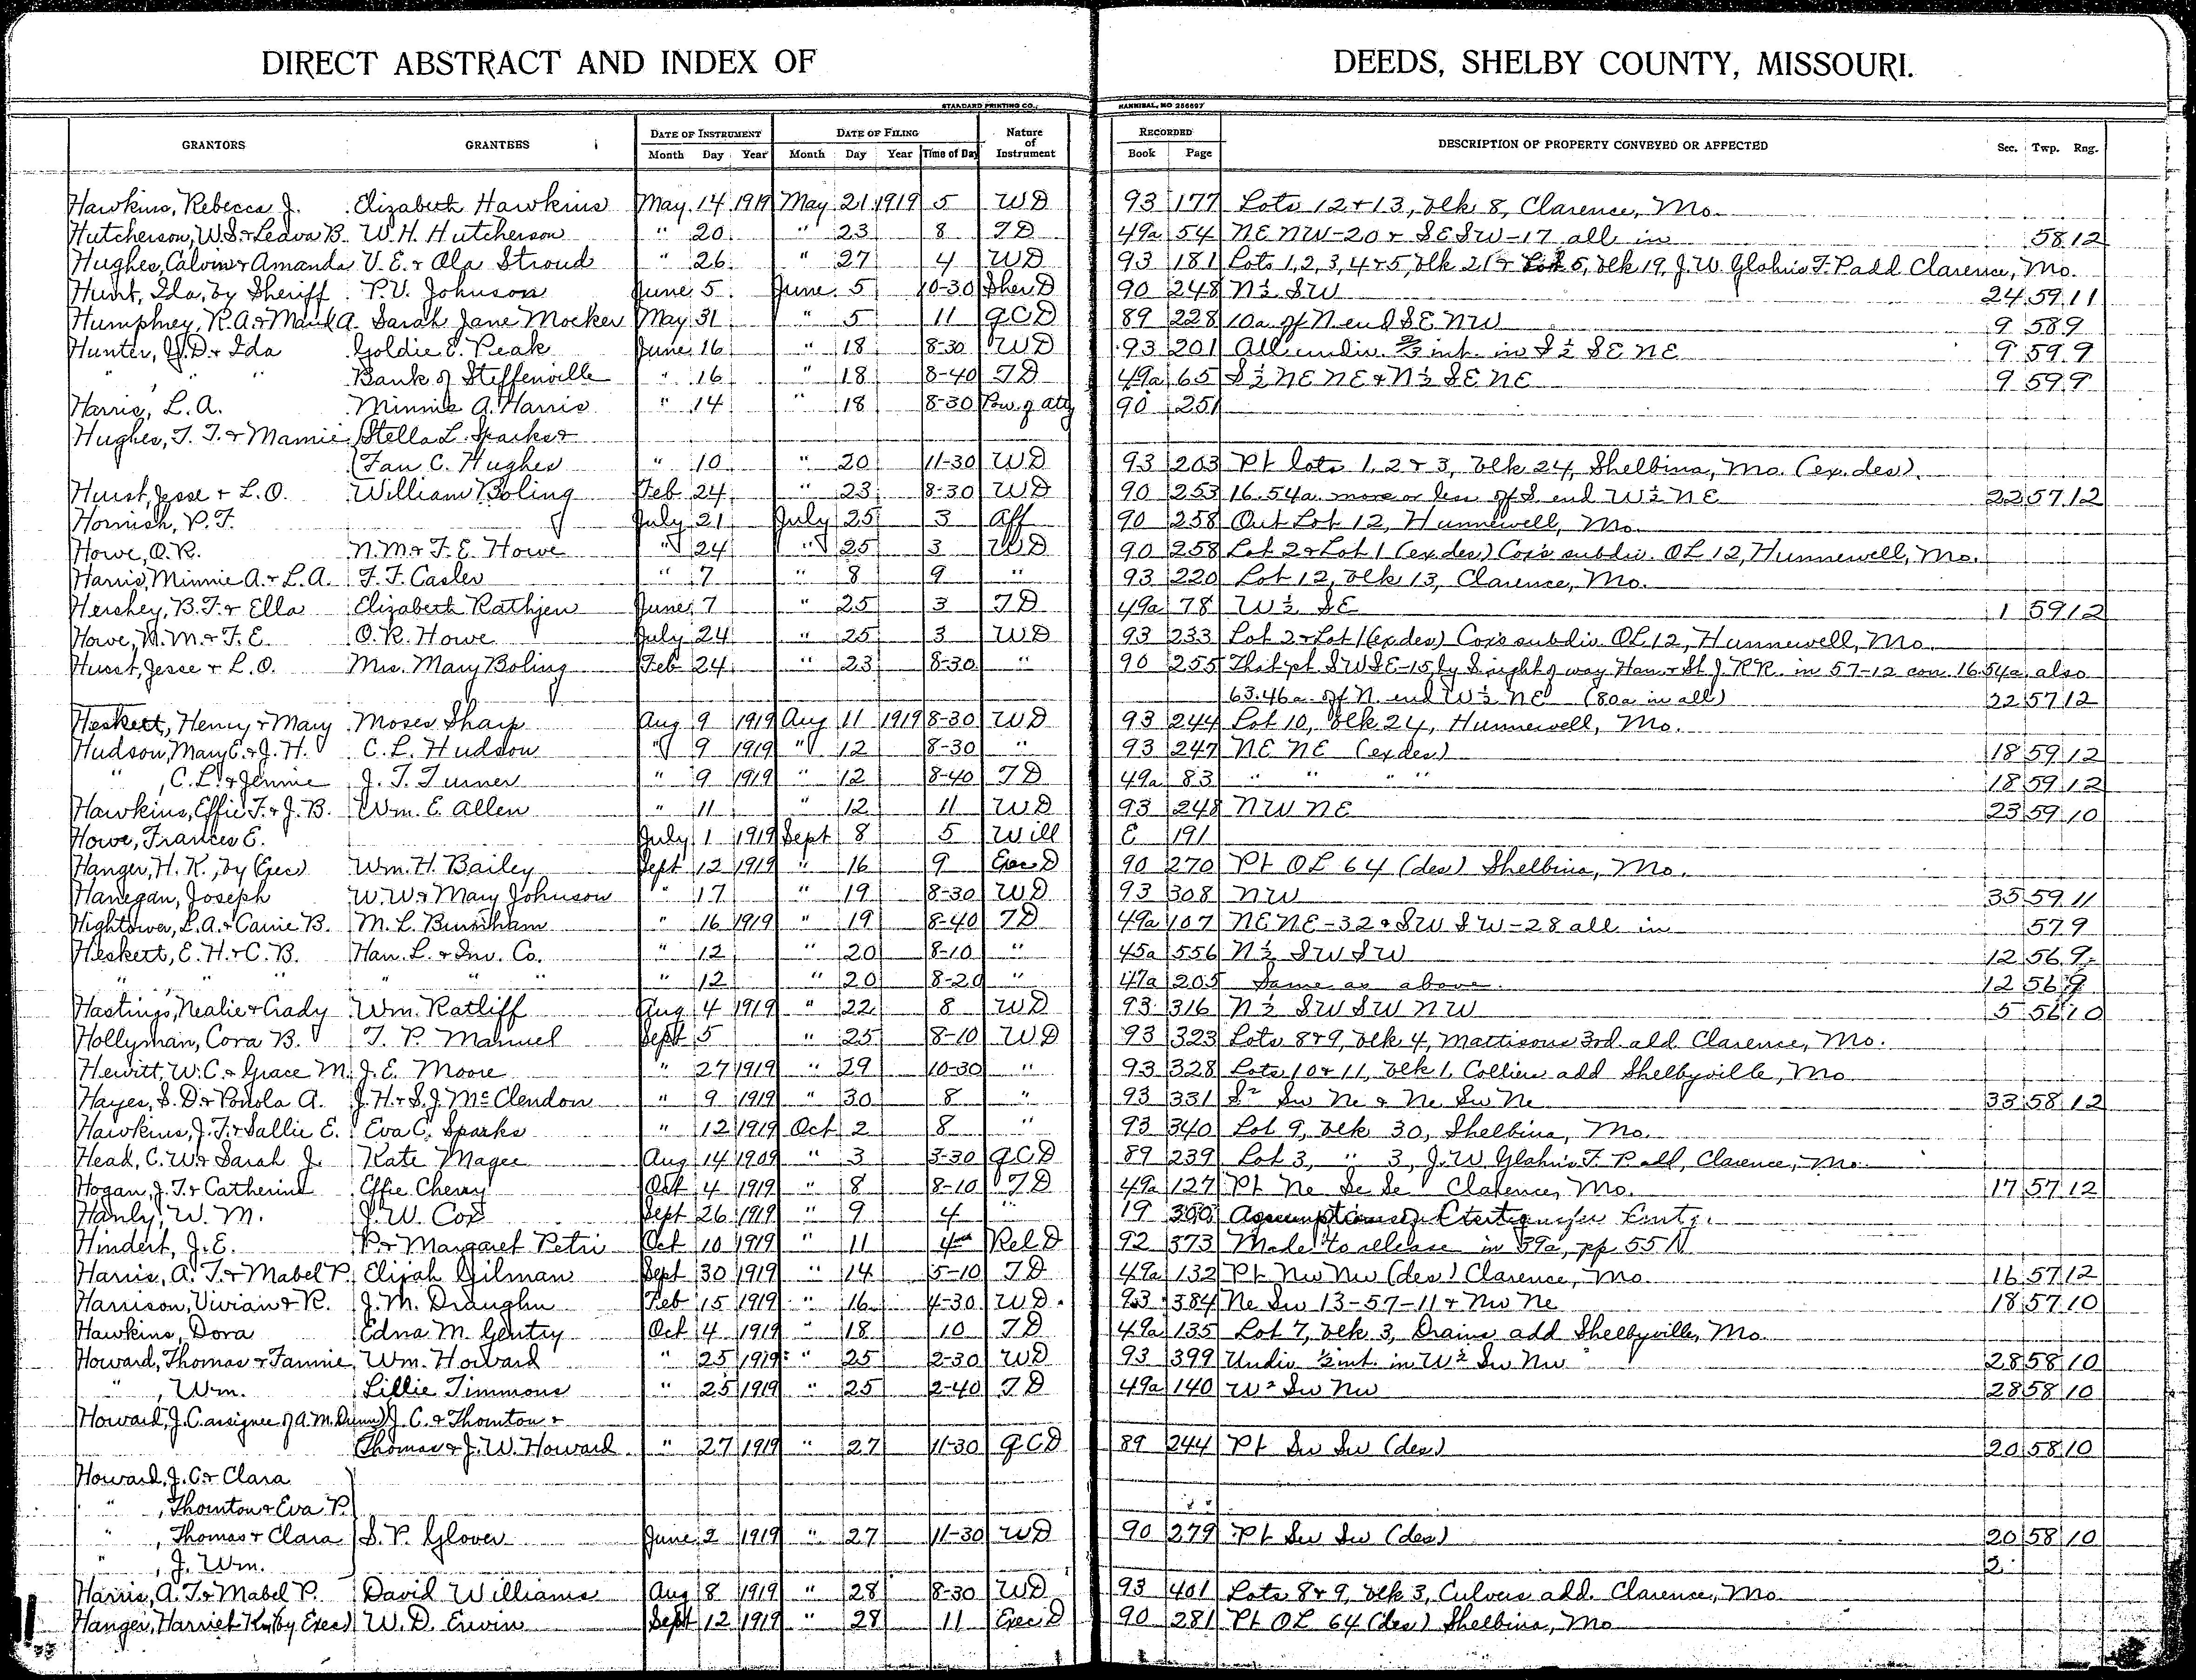 DIRECT ABSTRACT AND INDEX OF DEEDS, SHELBY COUNTY, MISSOURI.
STANDARD PRINTING CO., HANNIBAL, MO 256697
GRANTORS GRANTEES DATE OF INSTRUMENT DATE OF FILING Nature of Instrument RECORDED DESCRIPTION OF PROPERTY CONVEYED OR AFFECTED Sec. Twp. Rng.
Month Day Year Month Day Year Time of Day Book Page
Hawkins, Rebecca J. Elizabeth Hawkins May 14 1919 May 21 1919 5 WD 93 177 Lots 12 & 13, Blk 8, Clarence, Mo.
Hutcherson, W.S. & Leava B. W.H. Hutcherson " 20 " 23 8 TD 49a 54 NE NW-20 & SE SW-17 all in 58 12
Hughes, Calvin & Amanda V.E. & Ola Stroud " 26 " 27 4 WD 93 181 Lots 1,2,3,4 & 5, Blk 21 & Lot 5, Blk 19, J.W. Glahns F. P add Clarence, Mo.
Hunt, Ida, by Sheriff P.V. Johnson June 5 June 5 10-30 Sher D 90 248 N½ SW 24 59 11
Humphrey, R.A. & Maud A. Sarah Jane Mocker May 31 " 5 11 QCD 89 228 10a of N end SE NW 9 58 9
Hunter, J.D. & Ida Goldie E. Peak June 16 " 18 8-30 WD 93 201 All undiv. ⅔ int. in S½ SE NE 9 59 9
" " " Bank of Steffenville " 16 " 18 8-40 TD 49a 65 S½ NE NE & N½ SE NE 9 59 9
Harris, L.A. Minnie A. Harris " 14 " 18 8-30 Pow. of Atty 90 251
Hughes, T.T. & Mamie Stella L. Sparks &
(Fan C. Hughes " 10 " 20 11-30 WD 93 203 Pt lots 1, 2 & 3, Blk 24, Shelbina, Mo. (ex. des).
Hurst, Jesse & L.O. William Boling Feb 24 " 23 8-30 WD 90 253 16.54a. more or less of S. end W½ NE 22 57 12
Hornish, P.F. July 21 July 25 3 Aff 90 258 Out Lot 12, Hunnewell, Mo.
Howe, O.R. N.M. & F.E. Howe " 24 " 25 3 WD 90 258 Lot 2 & Lot 1 (ex des) Cox's subdiv. OL 12, Hunnewell, Mo.
Harris, Minnie A. & L.A. F.F. Casler " 7 " 8 9 " 93 220 Lot 12, Blk 13, Clarence, Mo.
Hershey, B.F. & Ella Elizabeth Rathjen June 7 " 25 3 TD 49a 78 W½ SE 1 59 12
Howe, N.M. & F.E. O.R. Howe July 24 " 25 3 WD 93 233 Lot 2 & Lot 1 (ex des) Cox's subdiv. OL 12, Hunnewell, Mo.
Hurst, Jesse & L.O. Mrs. Mary Boling Feb 24 " 23 8-30 " 90 255 That pt SW SE-15, ly S right of way Han. & St J. RR. in 57-12 con. 16.54a, also
63.46a. off N. end W½ NE (80a in all) 22 57 12
Heskett, Henry & Mary Moses Sharp Aug 9 1919 Aug 11 1919 8-30 WD 93 244 Lot 10, Blk 24, Hunnewell, Mo.
Hudson, Mary E. & J.H. C.L. Hudson " 9 1919 " 12 8-30 " 93 247 NE NE (ex des) 18 59 12
" , C.L. & Jennie J.T. Turner " 9 1919 " 12 8-40 TD 49a 83 " " " " 18 59 12
Hawkins, Effie F. & J.B. Wm. E. Allen " 11 " 12 11 WD 93 248 NW NE 23 59 10
Howe, Frances E. July 1 1919 Sept 8 5 Will E 191
Hanger, H.K., by (Exec) Wm. H. Bailey Sept 12 1919 " 16 9 Exec D 90 270 Pt OL 64 (des) Shelbina, Mo.
Hanegan, Joseph W.W. & Mary Johnson " 17 " 19 8-30 WD 93 308 NW 35 59 11
Hightower, L.A. & Carrie B. M.L. Burnham " 16 1919 " 19 8-40 TD 49a 107 NE NE-32 & SW SW-28 all in 57 9
Heskett, E.H. & C.B. Han. L. & Inv. Co. " 12 " 20 8-10 " 45a 556 N½ SW SW 12 56 9
" " " " " " " 12 " 20 8-20 " 47a 205 Same as above. 12 56 9
Hastings, Nealie & Grady Wm. Ratliff Aug 4 1919 " 22 8 WD 93 316 N½ SW SW NW 5 56 10
Hollyman, Cora B. T.P. Manuel Sept 5 " 25 8-10 WD 93 323 Lots 8 & 9, Blk 4, Mattisons 3rd add Clarence, Mo.
Hewitt, W.C. & Grace M. J.E. Moore " 27 1919 " 29 10-30 " 93 328 Lots 10 & 11, Blk 1, Colliers add Shelbyville, Mo
Hayes, S.D. & Ponola A. J.H. & S.J. McClendon " 9 1919 " 30 8 " 93 331 S² Sw Ne & Ne Sw Ne 33 58 12
Hawkins, J.T. & Sallie E. Eva C. Sparks " 12 1919 Oct 2 8 " 93 340 Lot 9, Blk 30, Shelbina, Mo.
Head, C.W. & Sarah J. Kate Magee Aug 14 1909 " 3 3-30 QCD 89 239 Lot 3, " 3, J.W Glahns F. P add, Clarence, Mo.
Hogan, J.T. & Catherine Effie Cherry Oct 4 1919 " 8 8-10 TD 49a 127 Pt Ne Se Se Clarence, Mo. 17 57 12
Hanly, W.M. J.W. Cox Sept 26 1919 " 9 4 " 19 390
Hindert, J.E. P. & Margaret Petri Oct 10 1919 " 11 4 Rel D 92 373 Made to release in 39a, pp 551
Harris, A.T. & Mabel P. Elijah Gilman Sept 30 1919 " 14 5-10 TD 49a 132 Pt Nw Nw (des) Clarence, Mo. 16 57 12
Harrison, Vivian & R. J.M. Draughn Feb 15 1919 " 16 4-30 WD 93 384 Ne Sw 13-57-11 & Nw Ne 18 57 10
Hawkins, Dora Edna M. Gentry Oct 4 1919 " 18 10 TD 49a 135 Lot 7, Blk 3, Drains add Shelbyville, Mo.
Howard, Thomas & Fannie Wm. Howard " 25 1919 " 25 2-30 WD 93 399 Undiv. ½ int. in W½ Sw Nw 28 58 10
" , Wm. Lillie Timmons " 25 1919 " 25 2-40 TD 49a 140 W² Sw Nw 28 58 10
Howard, J.C. assignee of A.M. Dunn) J.C. & Thornton &
(Thomas & J.W. Howard " 27 1919 " 27 11-30 QCD 89 244 Pt Sw Sw (des) 20 58 10
Howard, J.C. & Clara
" , Thornton & Eva P.
" , Thomas & Clara S.P. Glover June 2 1919 " 27 11-30 WD 90 279 Pt Sw Sw (des) 20 58 10
" , J. Wm. 2
Harris, A.T. & Mabel P. David Williams Aug 8 1919 " 28 8-30 WD 93 401 Lots 8 & 9, Blk 3, Culvers add. Clarence, Mo.
Hanger, Harriet K. (by Exec) W.D. Erwin Sept 12 1919 " 28 11 Exec D 90 281 Pt OL 64 (des) Shelbina, Mo